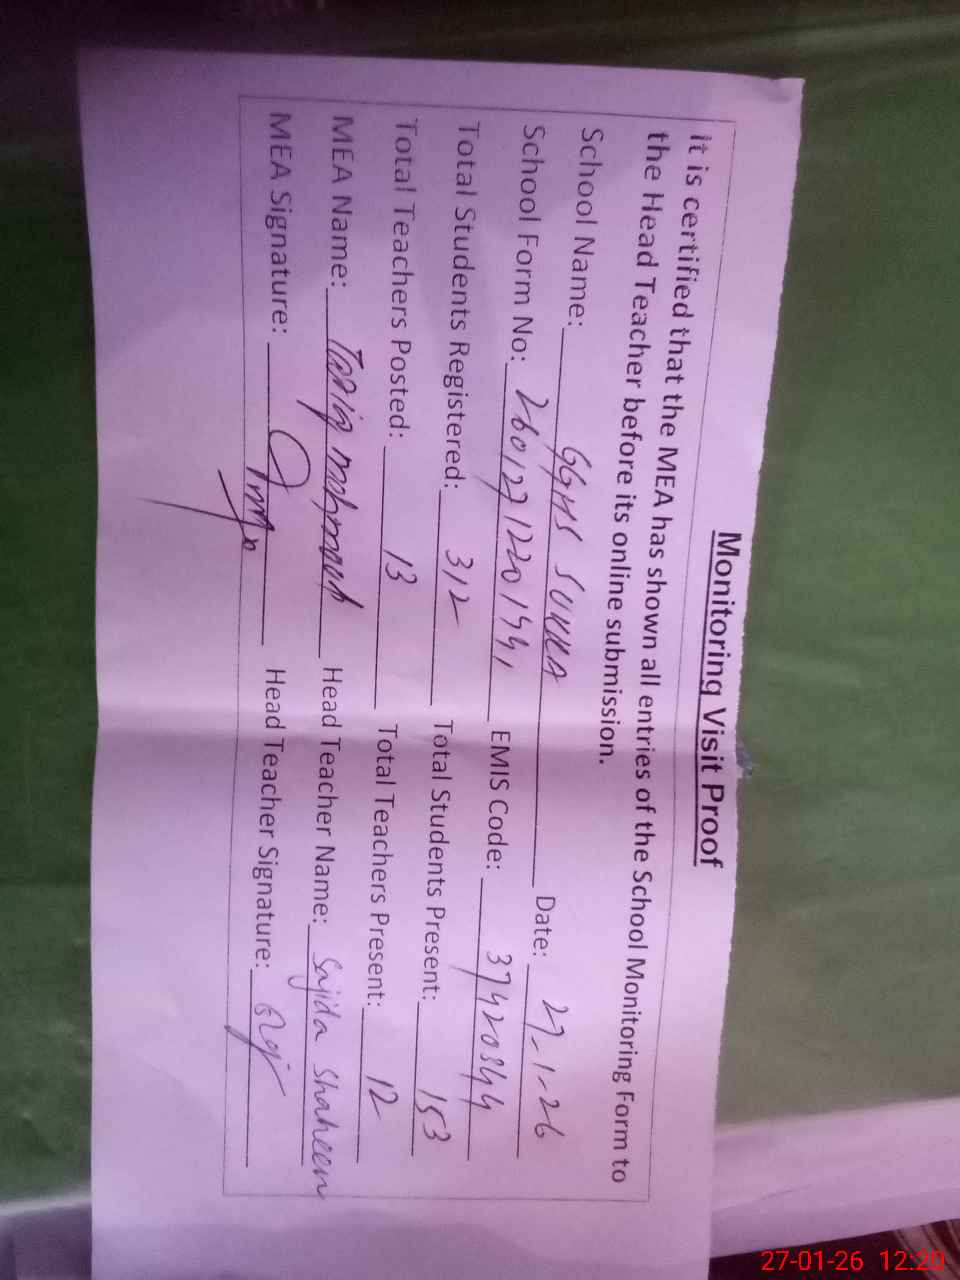 Monitoring Visit Proof
it is certified that the MEA has shown all entries of the School Monitoring Form to
the Head Teacher before its online submission.
School Name: GGHS SUKKA Date: 27-1-26
School Form No: EMIS Code: 37420844
Total Students Registered: 312 Total Students Present: 153
Total Teachers Posted: 13 Total Teachers Present: 12
MEA Name: Tariq mahmood Head Teacher Name: Sajida Shaheen
MEA Signature: Head Teacher Signature:
27-01-26 12:20